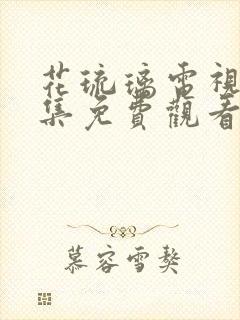 花琉璃電視
集免費觀看
慕容雪熬